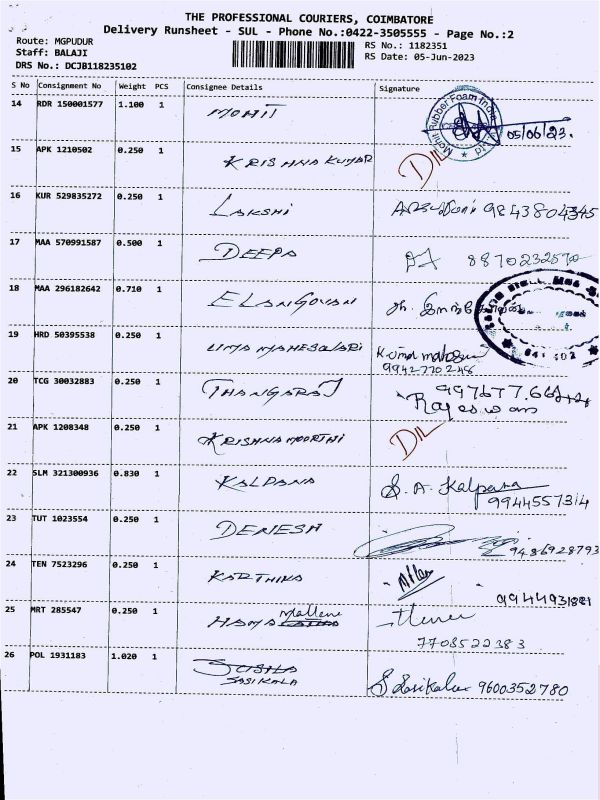 THE PROFESSIONAL COURIERS, COIMBATORE
Delivery Runsheet - SUL - Phone No.:0422-3505555 - Page No.:2
Route: MGPUDUR
Staff: BALAJI
DRS No.: DCJB118235102
RS No.: 1182351
RS Date: 05-Jun-2023
S No Consignment No Weight PCS Consignee Details Signature
14 RDR 150001577 1.100 1 MOHIT 05/06/23.
Mohit Rubber Foam India
15 APK 1210502 0.250 1 KRISHNA KUMAR DIL
16 KUR 529835272 0.250 1 LAKSHI 9843804345
17 MAA 570991587 0.500 1 DEEPA 8870232570
18 MAA 296182642 0.710 1 ELANGOVAN
19 HRD 50395538 0.250 1 UMA MAHESWARI
9942770246
20 TCG 30032883 0.250 1 THANGARAJ
Rajeswari
21 APK 1208348 0.250 1 KRISHNAMOORTHI DIL
22 SLM 321300936 0.830 1 KALPANA S. A. Kalpana
9944557314
23 TUT 1023554 0.250 1 DENESH 9486928793
24 TEN 7523296 0.250 1 KARTHIKA
9944931881
25 MRT 285547 0.250 1 HAMA
7708522383
26 POL 1931183 1.020 1 SUSILA
SASIKALA S Sasikala 9600352780